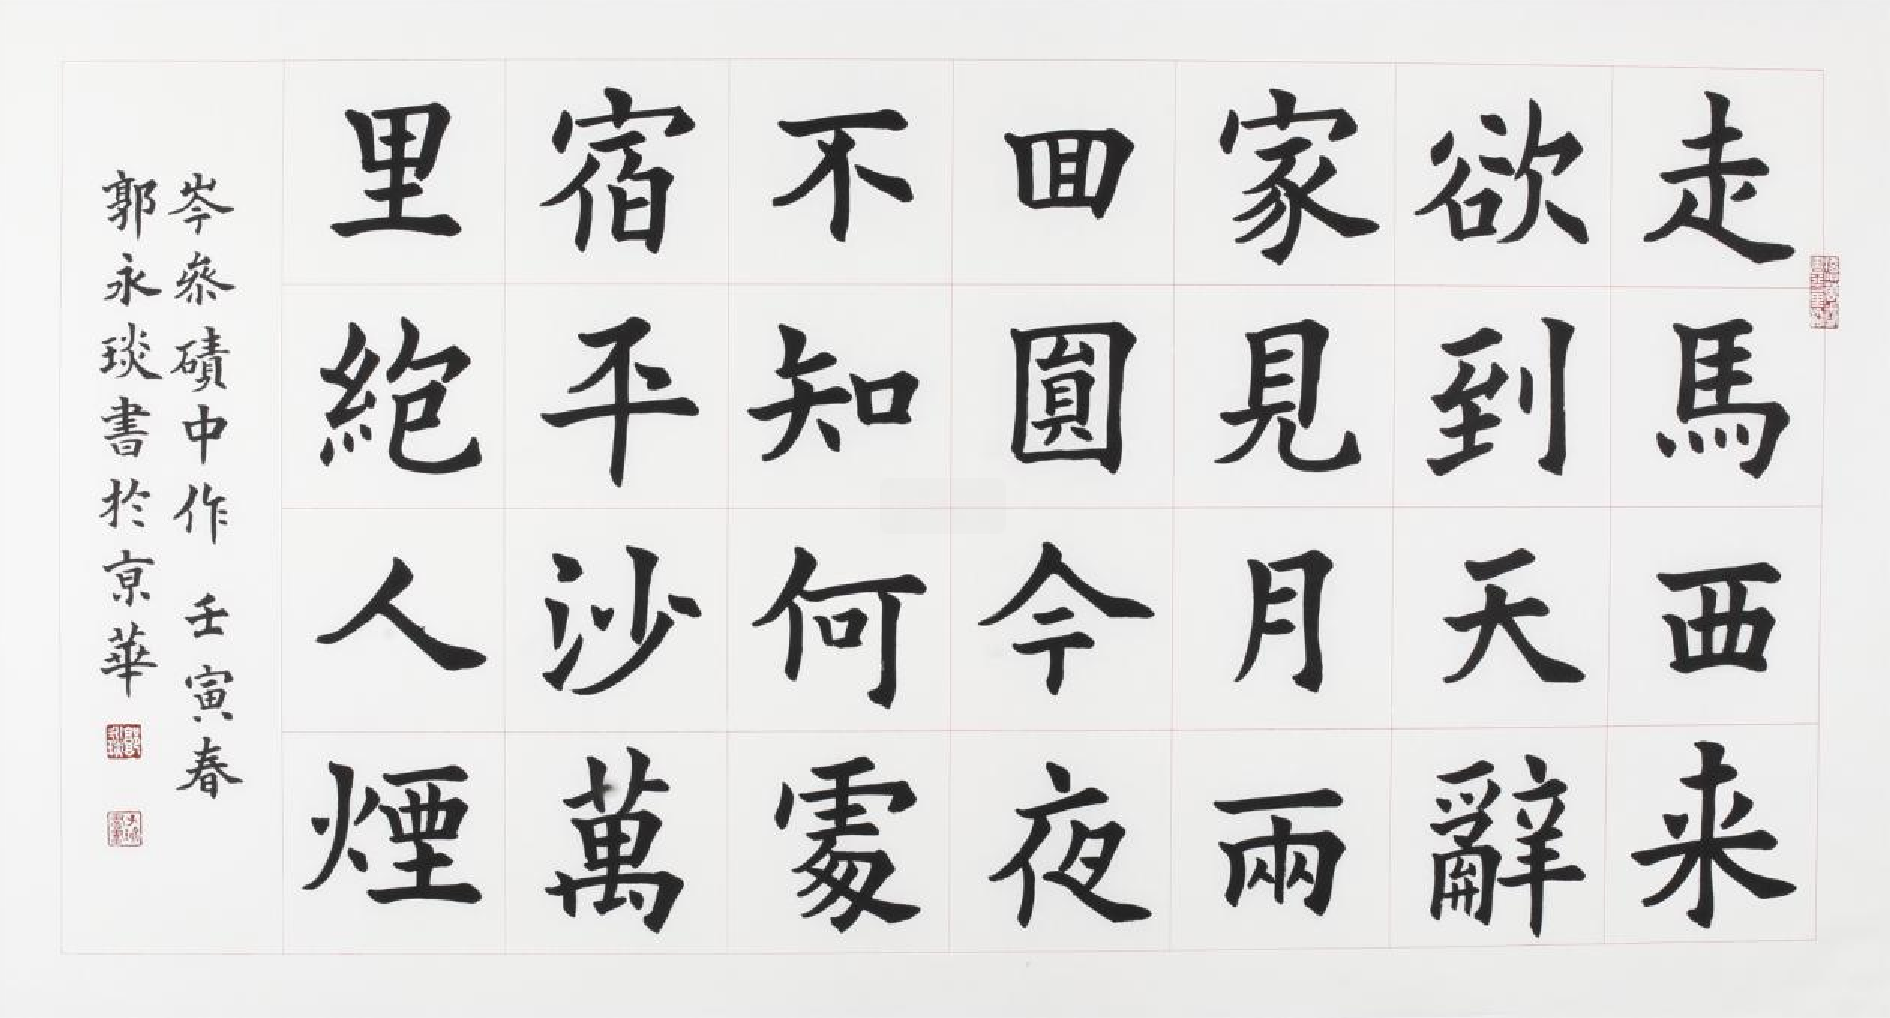 走馬西来
欲到天辭
家見月兩
回圓今夜
不知何處
宿平沙萬
里絕人煙
岑參磧中作 壬寅春
郭永琰書於京華